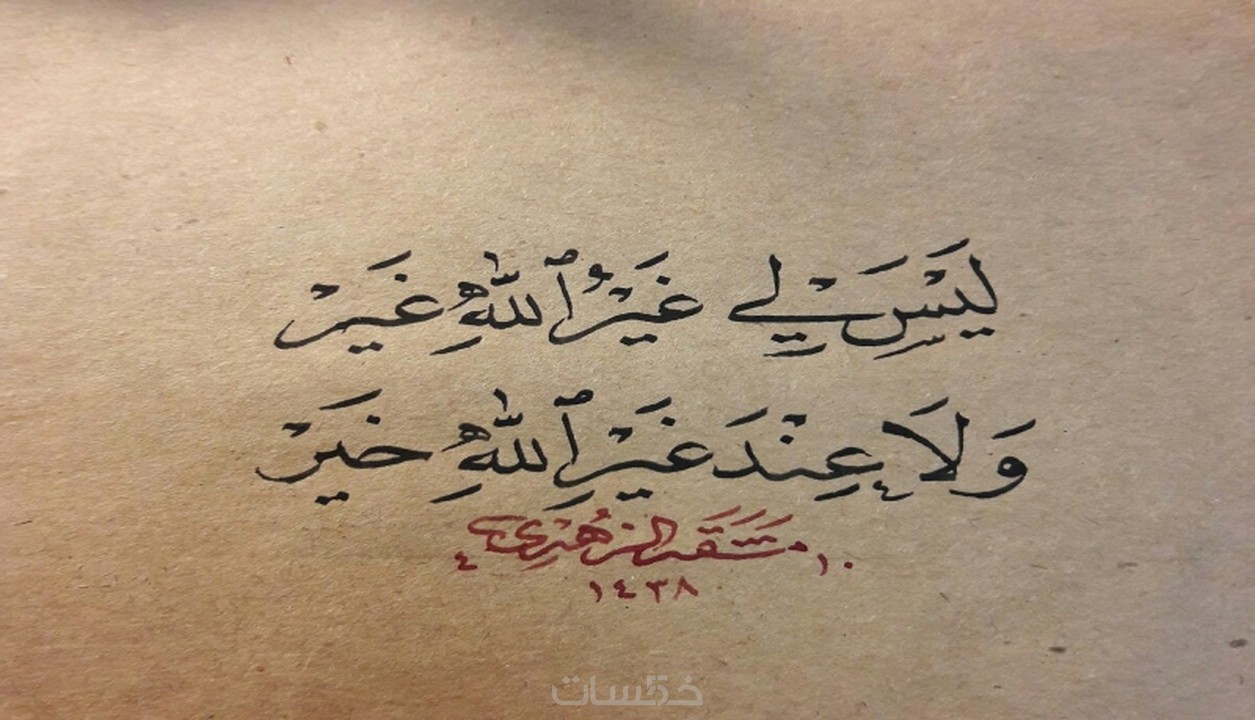 لَيْسَ لِي غَيْرُ ٱللَّهِ غَيْرْ
وَلَا عِنْدَ غَيْرِ ٱللَّهِ خَيْرْ
الزهري
١٤٣٨
خمسات